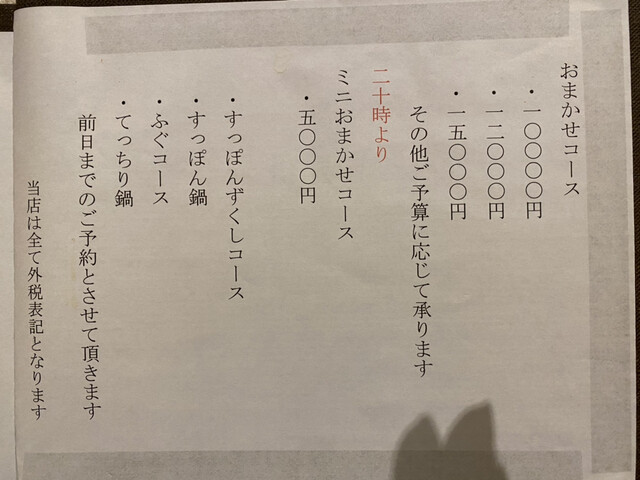 おまかせコース
・一〇〇〇〇円
・一二〇〇〇円
・一五〇〇〇円
その他ご予算に応じて承ります
二十時より
ミニおまかせコース
・五〇〇〇円
・すっぽんずくしコース
・すっぽん鍋
・ふぐコース
・てっちり鍋
前日までのご予約とさせて頂きます
当店は全て外税表記となります